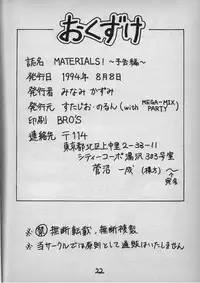 おくずけ
誌名 MATERIALS! ～予告編～
発行日 1994年 8月8日
発行者 みなみ かずみ
発行元 すたじお・のるん (with MEGA-MIX PARTY)
印刷 BRO'S
連絡先 〒114
東京都北区上中里2-38-11
シティーコーポ湯沢303号室
菅沼 一成 (様方)
※ 禁 無断転載, 無断複製
※ 当サークルでは原則として通販はいたしません
22